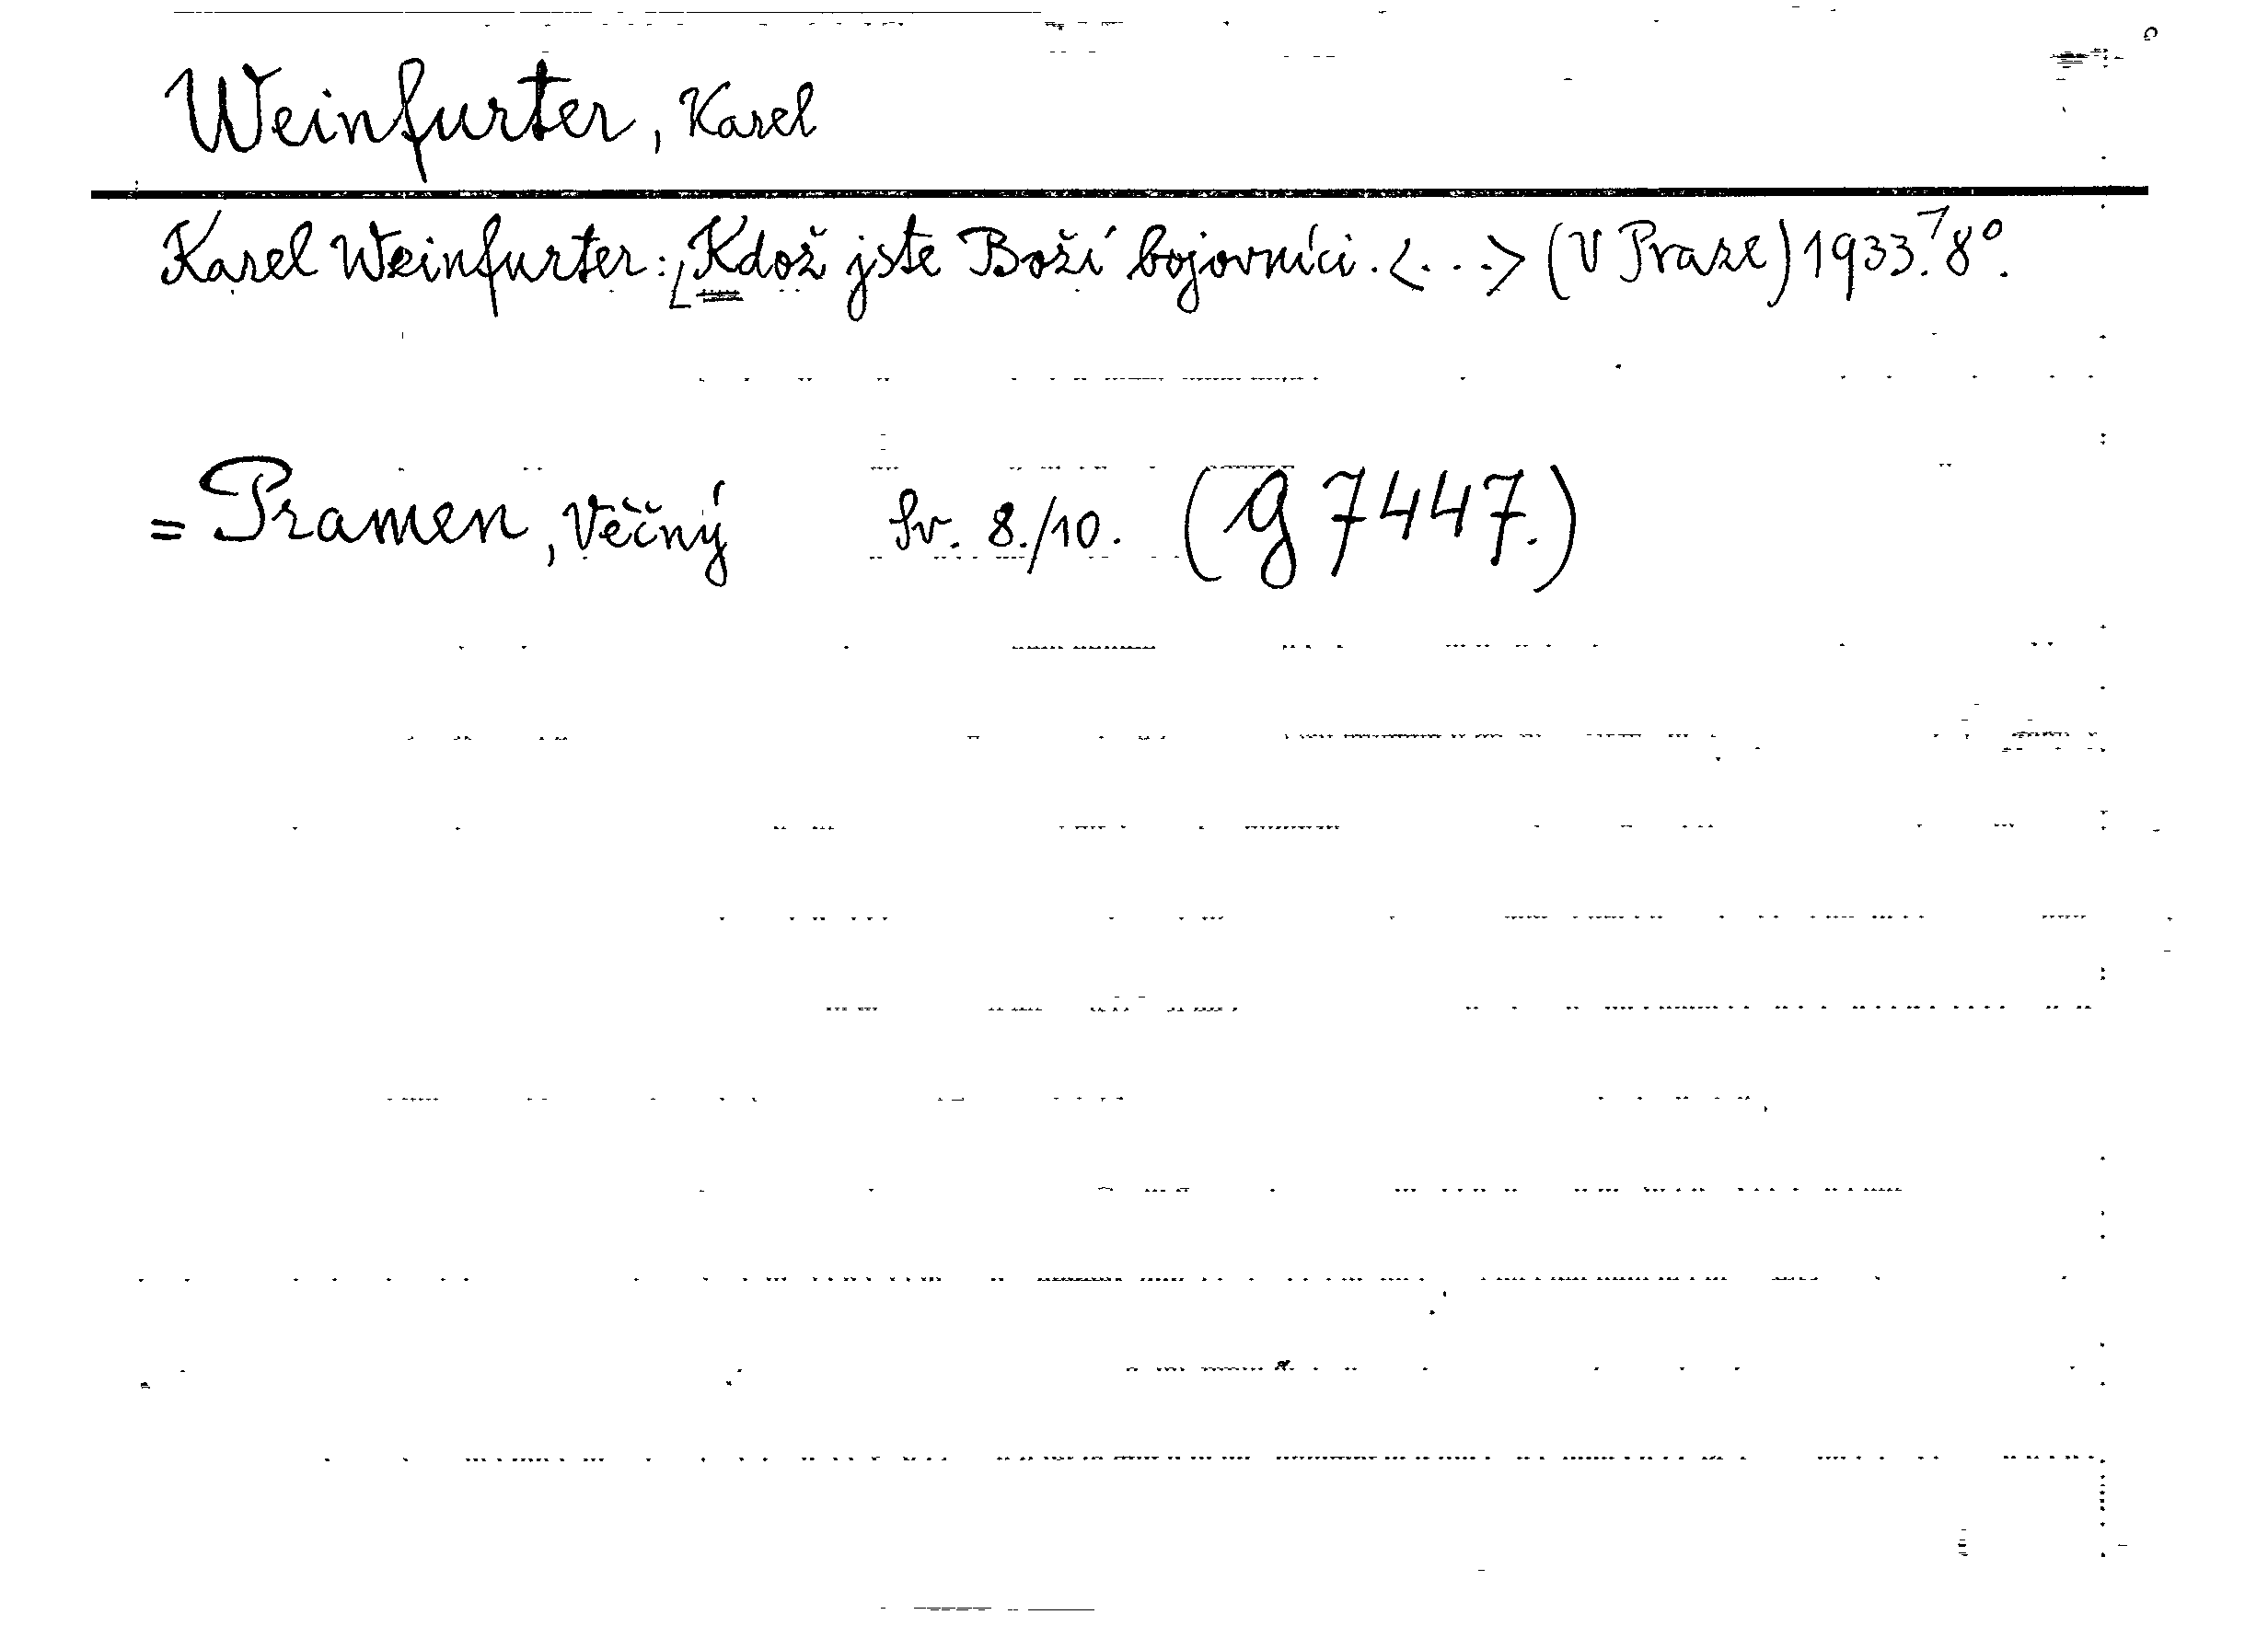 Weinfurter, Karel
Karel Weinfurter: [Kdož jste Boží bojovníci. <...> (V Praze) 1933.⌉ 8°.
= Pramen, Věčný Sv. 8./10. (G 7447.)